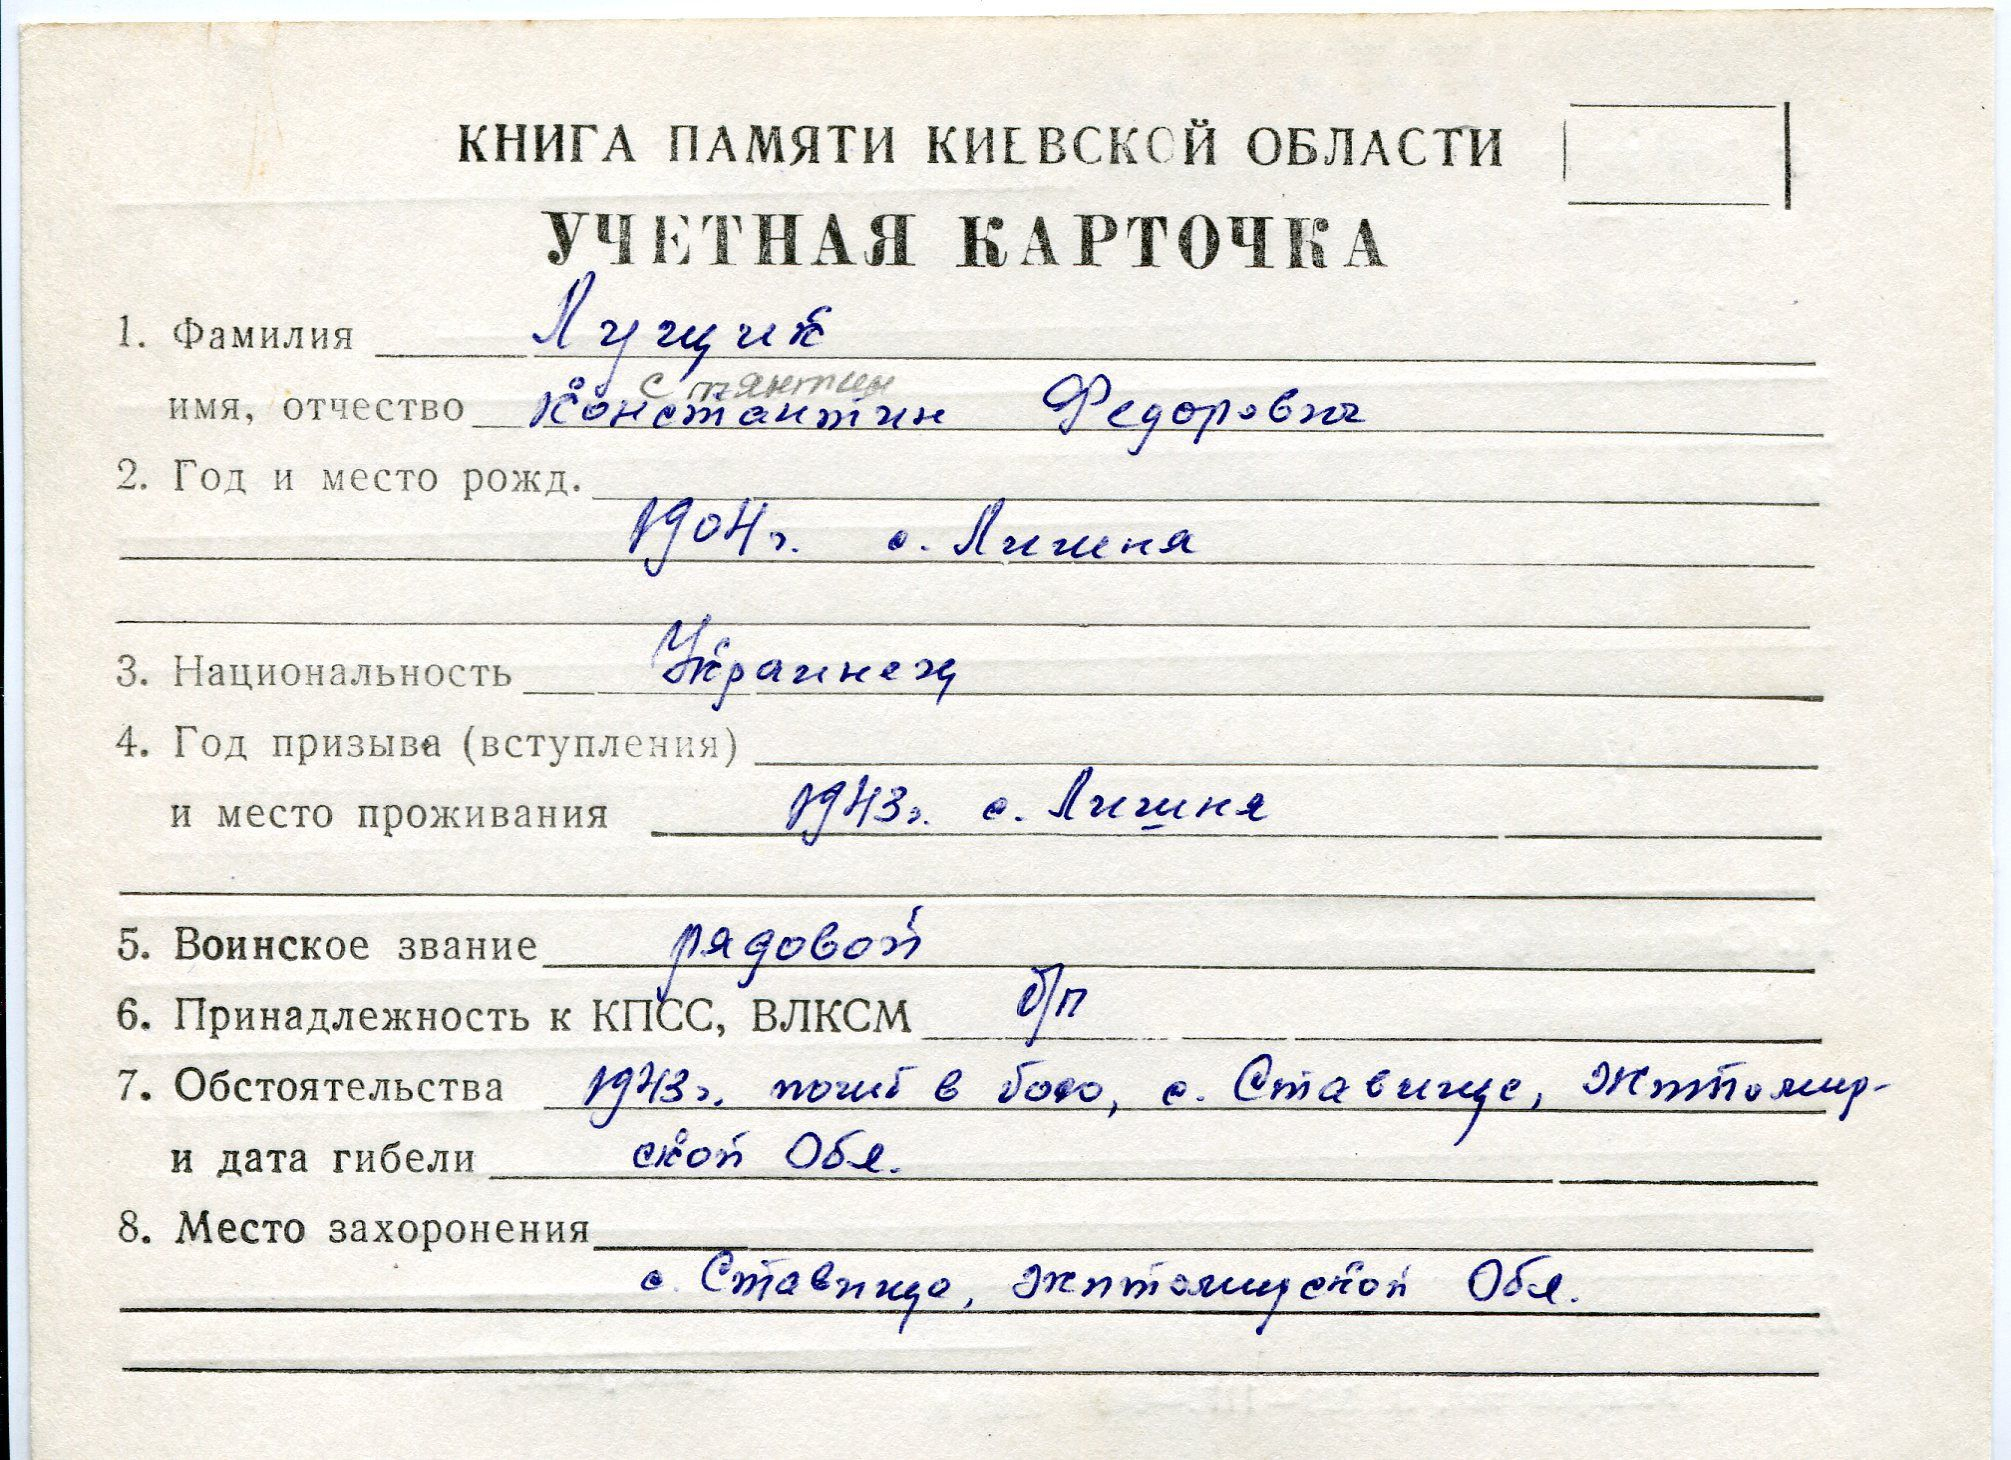 КНИГА ПАМЯТИ КИЕВСКОЙ ОБЛАСТИ
УЧЕТНАЯ КАРТОЧКА
1. Фамилия Лущик
стянтин
имя, отчество Константин Федорович
2. Год и место рожд.
1904г. с. Лишня
3. Национальность Украинец
4. Год призыва (вступления)
и место проживания 1943г. с. Лишня
5. Воинское звание рядовой
6. Принадлежность к КПСС, ВЛКСМ б/п
7. Обстоятельства 1943г. погиб в бою, с. Ставище, Житомир-
и дата гибели ской Обл.
8. Место захоронения
с. Ставище, Житомирской Обл.